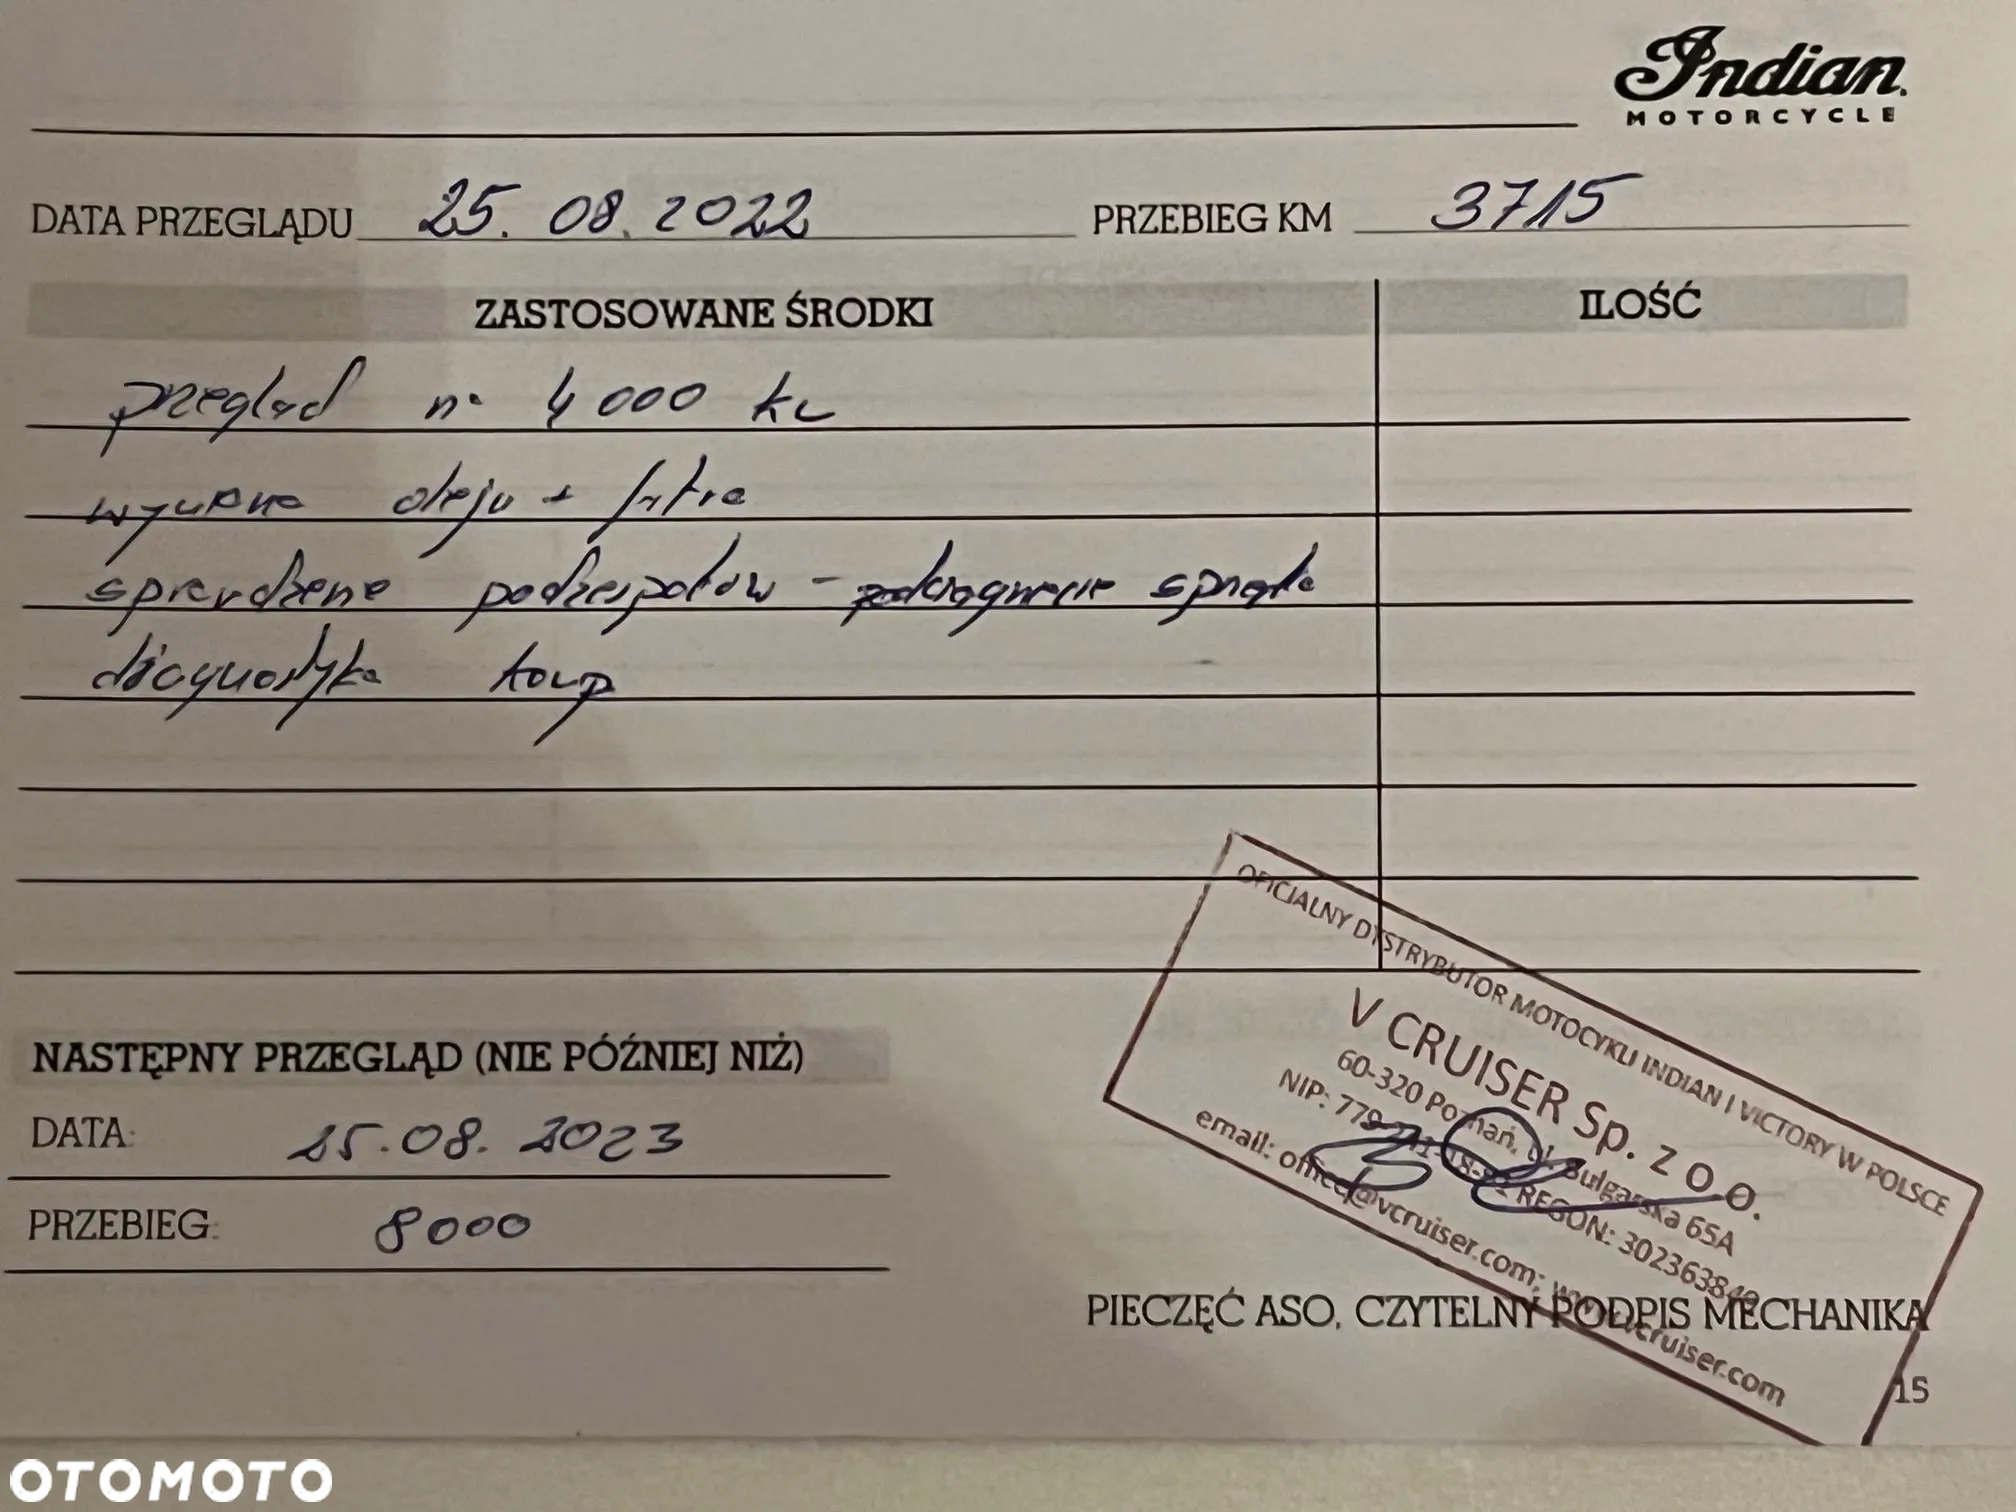 Indian
MOTORCYCLE
DATA PRZEGLĄDU 25.08.2022 PRZEBIEG KM 3715
ZASTOSOWANE ŚRODKI ILOŚĆ
przegląd na 4000 km
wymiana oleju + filtra
sprawdzenie podzespołów - sprzęgła
diagnostyka komp
NASTĘPNY PRZEGLĄD (NIE PÓŹNIEJ NIŻ)
DATA: 25.08.2023
PRZEBIEG: 8000
OFICJALNY DYSTRYBUTOR MOTOCYKLI INDIAN I VICTORY W POLSCE
V CRUISER Sp. z o o.
60-320 Poznań, ul. Bułgarska 65A
NIP: REGON: 302363849
email: office@vcruiser.com; www.vcruiser.com
PIECZĘĆ ASO, CZYTELNY PODPIS MECHANIKA
15
OTOMOTO